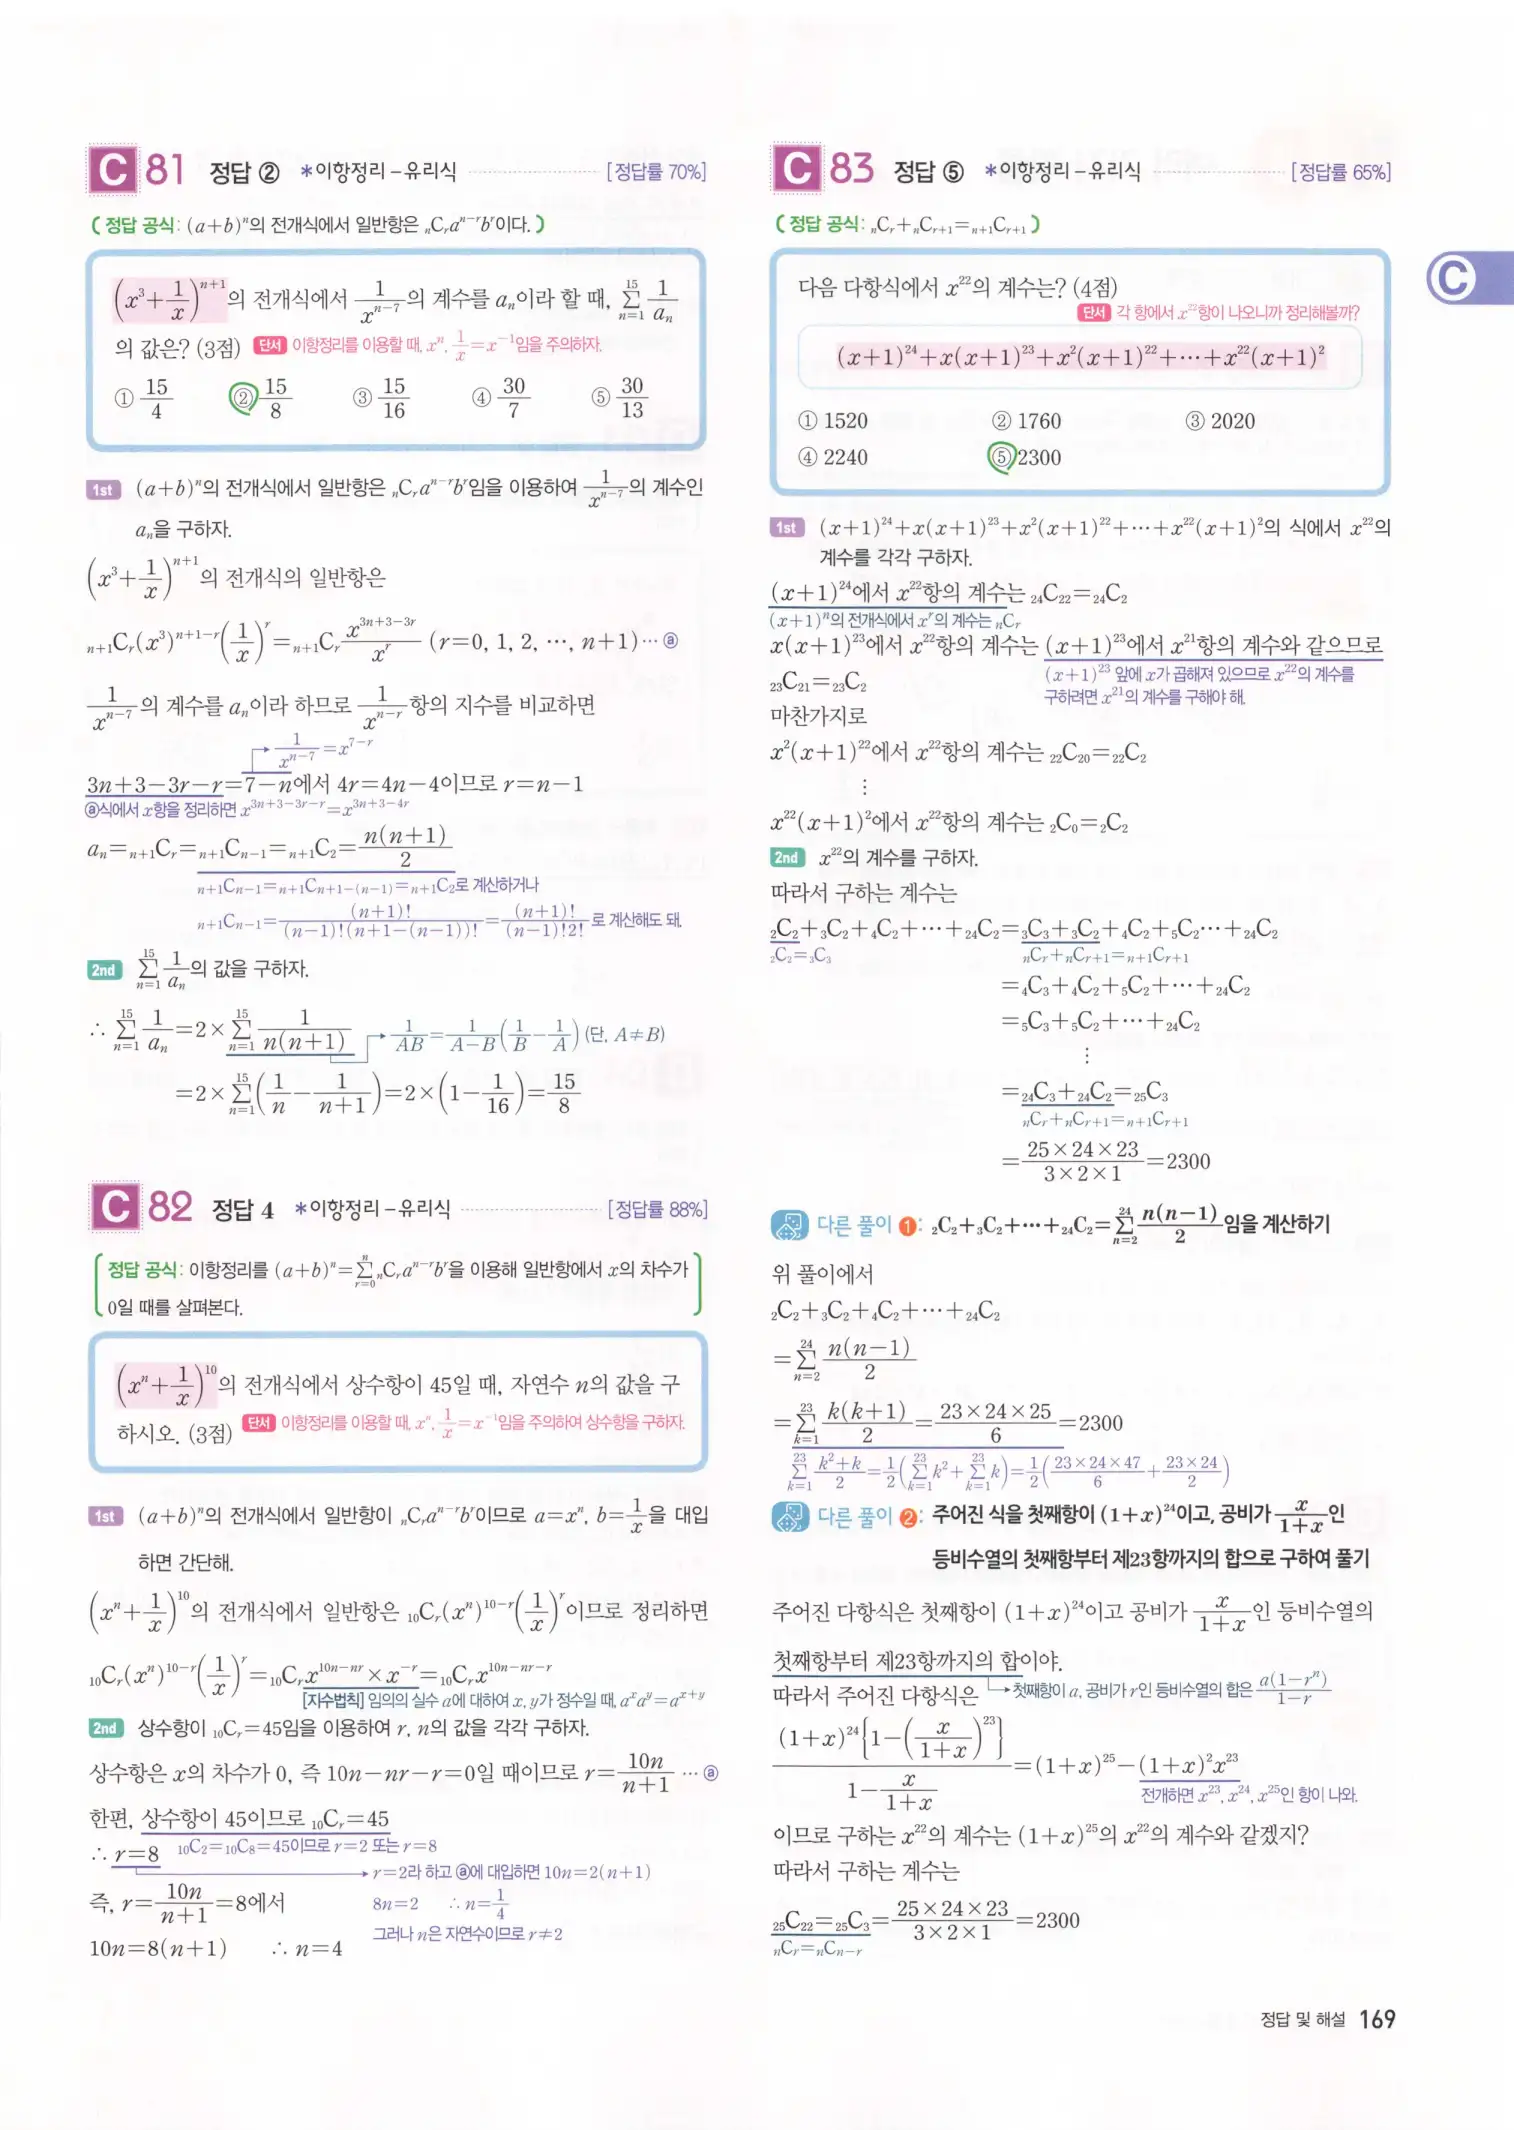 C 81 정답 ② *이항정리-유리식 [정답률 70%]
( 정답 공식: (a+b)ⁿ의 전개식에서 일반항은 ₙCᵣaⁿ⁻ʳbʳ이다. )
(x³+1/x)ⁿ⁺¹의 전개식에서 1/xⁿ⁻⁷의 계수를 aₙ이라 할 때, Σ(n=1 to 15) 1/aₙ
의 값은? (3점) 단서 이항정리를 이용할 때, xⁿ, 1/x=x⁻¹임을 주의하자.
① 15/4 ② 15/8 ③ 15/16 ④ 30/7 ⑤ 30/13
1st (a+b)ⁿ의 전개식에서 일반항은 ₙCᵣaⁿ⁻ʳbʳ임을 이용하여 1/xⁿ⁻⁷의 계수인
aₙ을 구하자.
(x³+1/x)ⁿ⁺¹의 전개식의 일반항은
ₙ₊₁Cᵣ(x³)ⁿ⁺¹⁻ʳ(1/x)ʳ=ₙ₊₁Cᵣ x³ⁿ⁺³⁻³ʳ/xʳ (r=0, 1, 2, ⋯, n+1)⋯ⓐ
1/xⁿ⁻⁷의 계수를 aₙ이라 하므로 1/xⁿ⁻ʳ항의 지수를 비교하면
1/xⁿ⁻⁷=x⁷⁻ʳ
3n+3-3r-r=7-n에서 4r=4n-4이므로 r=n-1
ⓐ식에서 x항을 정리하면 x³ⁿ⁺³⁻³ʳ⁻ʳ=x³ⁿ⁺³⁻⁴ʳ
aₙ=ₙ₊₁Cᵣ=ₙ₊₁Cₙ₋₁=ₙ₊₁C₂=n(n+1)/2
ₙ₊₁Cₙ₋₁=ₙ₊₁Cₙ₊₁₋₍ₙ₋₁₎=ₙ₊₁C₂로 계산하거나
ₙ₊₁Cₙ₋₁=(n+1)!/((n-1)!(n+1-(n-1))!)=(n+1)!/((n-1)!2!)로 계산해도 돼.
2nd Σ(n=1 to 15) 1/aₙ의 값을 구하자.
∴ Σ(n=1 to 15) 1/aₙ=2×Σ(n=1 to 15) 1/(n(n+1)) 1/AB=1/(A-B)(1/B-1/A) (단, A≠B)
=2×Σ(n=1 to 15)(1/n-1/(n+1))=2×(1-1/16)=15/8
C 82 정답 4 *이항정리-유리식 [정답률 88%]
정답 공식: 이항정리를 (a+b)ⁿ=Σ(r=0 to n) ₙCᵣaⁿ⁻ʳbʳ을 이용해 일반항에서 x의 차수가
0일 때를 살펴본다.
(xⁿ+1/x)¹⁰의 전개식에서 상수항이 45일 때, 자연수 n의 값을 구
하시오. (3점) 단서 이항정리를 이용할 때, xⁿ, 1/x=x⁻¹임을 주의하여 상수항을 구하자.
1st (a+b)ⁿ의 전개식에서 일반항이 ₙCᵣaⁿ⁻ʳbʳ이므로 a=xⁿ, b=1/x을 대입
하면 간단해.
(xⁿ+1/x)¹⁰의 전개식에서 일반항은 ₁₀Cᵣ(xⁿ)¹⁰⁻ʳ(1/x)ʳ이므로 정리하면
₁₀Cᵣ(xⁿ)¹⁰⁻ʳ(1/x)ʳ=₁₀Cᵣx¹⁰ⁿ⁻ⁿʳ×x⁻ʳ=₁₀Cᵣx¹⁰ⁿ⁻ⁿʳ⁻ʳ
[지수법칙] 임의의 실수 a에 대하여 x, y가 정수일 때, aˣaʸ=aˣ⁺ʸ
2nd 상수항이 ₁₀Cᵣ=45임을 이용하여 r, n의 값을 각각 구하자.
상수항은 x의 차수가 0, 즉 10n-nr-r=0일 때이므로 r=10n/(n+1) ⋯ⓐ
한편, 상수항이 45이므로 ₁₀Cᵣ=45
∴ r=8 ₁₀C₂=₁₀C₈=45이므로 r=2 또는 r=8
r=2라 하고 ⓐ에 대입하면 10n=2(n+1)
즉, r=10n/(n+1)=8에서 8n=2 ∴ n=1/4
그러나 n은 자연수이므로 r≠2
10n=8(n+1) ∴ n=4
C 83 정답 ⑤ *이항정리-유리식 [정답률 65%]
( 정답 공식: ₙCᵣ+ₙCᵣ₊₁=ₙ₊₁Cᵣ₊₁ )
C
다음 다항식에서 x²²의 계수는? (4점)
단서 각 항에서 x²²항이 나오니까 정리해볼까?
(x+1)²⁴+x(x+1)²³+x²(x+1)²²+⋯+x²²(x+1)²
① 1520 ② 1760 ③ 2020
④ 2240 ⑤ 2300
1st (x+1)²⁴+x(x+1)²³+x²(x+1)²²+⋯+x²²(x+1)²의 식에서 x²²의
계수를 각각 구하자.
(x+1)²⁴에서 x²²항의 계수는 ₂₄C₂₂=₂₄C₂
(x+1)ⁿ의 전개식에서 xʳ의 계수는 ₙCᵣ
x(x+1)²³에서 x²²항의 계수는 (x+1)²³에서 x²¹항의 계수와 같으므로
₂₃C₂₁=₂₃C₂ (x+1)²³ 앞에 x가 곱해져 있으므로 x²²의 계수를
구하려면 x²¹의 계수를 구해야 해.
마찬가지로
x²(x+1)²²에서 x²²항의 계수는 ₂₂C₂₀=₂₂C₂
⋮
x²²(x+1)²에서 x²²항의 계수는 ₂C₀=₂C₂
2nd x²²의 계수를 구하자.
따라서 구하는 계수는
₂C₂+₃C₂+₄C₂+⋯+₂₄C₂=₃C₃+₃C₂+₄C₂+₅C₂⋯+₂₄C₂
₂C₂=₃C₃ ₙCᵣ+ₙCᵣ₊₁=ₙ₊₁Cᵣ₊₁
=₄C₃+₄C₂+₅C₂+⋯+₂₄C₂
=₅C₃+₅C₂+⋯+₂₄C₂
⋮
=₂₄C₃+₂₄C₂=₂₅C₃
ₙCᵣ+ₙCᵣ₊₁=ₙ₊₁Cᵣ₊₁
=25×24×23/3×2×1=2300
다른 풀이 ❶: ₂C₂+₃C₂+⋯+₂₄C₂=Σ(n=2 to 24) n(n-1)/2임을 계산하기
위 풀이에서
₂C₂+₃C₂+₄C₂+⋯+₂₄C₂
=Σ(n=2 to 24) n(n-1)/2
=Σ(k=1 to 23) k(k+1)/2=23×24×25/6=2300
Σ(k=1 to 23) (k²+k)/2=1/2(Σ(k=1 to 23) k²+Σ(k=1 to 23) k)=1/2(23×24×47/6+23×24/2)
다른 풀이 ❷: 주어진 식을 첫째항이 (1+x)²⁴이고, 공비가 x/(1+x)인
등비수열의 첫째항부터 제23항까지의 합으로 구하여 풀기
주어진 다항식은 첫째항이 (1+x)²⁴이고 공비가 x/(1+x)인 등비수열의
첫째항부터 제23항까지의 합이야.
따라서 주어진 다항식은 첫째항이 a, 공비가 r인 등비수열의 합은 a(1-rⁿ)/(1-r)
(1+x)²⁴{1-(x/(1+x))²³}/(1-x/(1+x))=(1+x)²⁵-(1+x)²x²³
전개하면 x²³, x²⁴, x²⁵인 항이 나와.
이므로 구하는 x²²의 계수는 (1+x)²⁵의 x²²의 계수와 같겠지?
따라서 구하는 계수는
₂₅C₂₂=₂₅C₃=25×24×23/3×2×1=2300
ₙCᵣ=ₙCₙ₋ᵣ
정답 및 해설 169